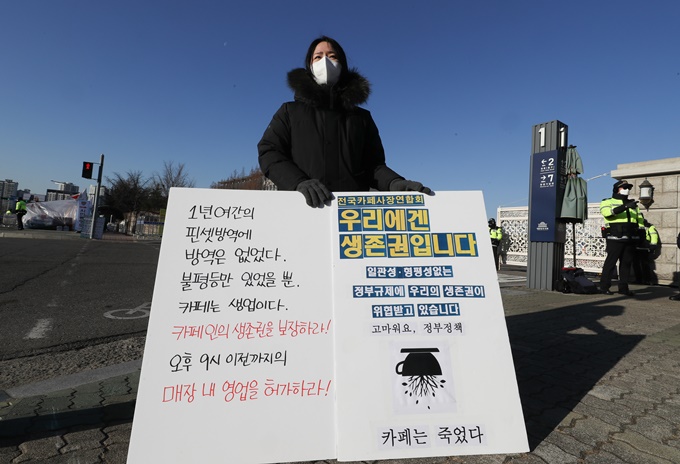 1년여간의
핀셋방역에
방역은 없었다.
불평등만 있었을 뿐.
카페는 생업이다.
카페인의 생존권을 보장하라!
오후 9시 이전까지의
매장 내 영업을 허가하라!
전국카페사장연합회
우리에겐
생존권입니다
일관성·형평성없는
정부규제에 우리의 생존권이
위협받고 있습니다
고마워요, 정부정책
카페는 죽었다
1
1
2
7